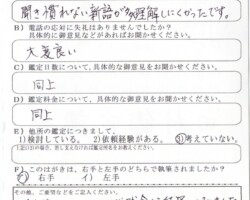 聞き慣れない新語が多く理解しにくかったです。
B）電話の応対に失礼はありませんでしたか？
具体的に御意見などがあればお聞かせください。
大変良い
C）鑑定日数について、具体的な御意見をお聞かせください。
同上
D）鑑定料金について、具体的な御意見をお聞かせください。
同上
E）他所の鑑定につきまして。
1)検討している。 2)依頼経験がある。 3)考えていない。
F）このはがきは、右手と左手のどちらで執筆されましたか？
ア 右手 イ 左手